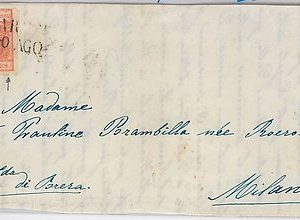 AGO
Madame
Pauline Brambilla née Roero
di Brera.
Milan